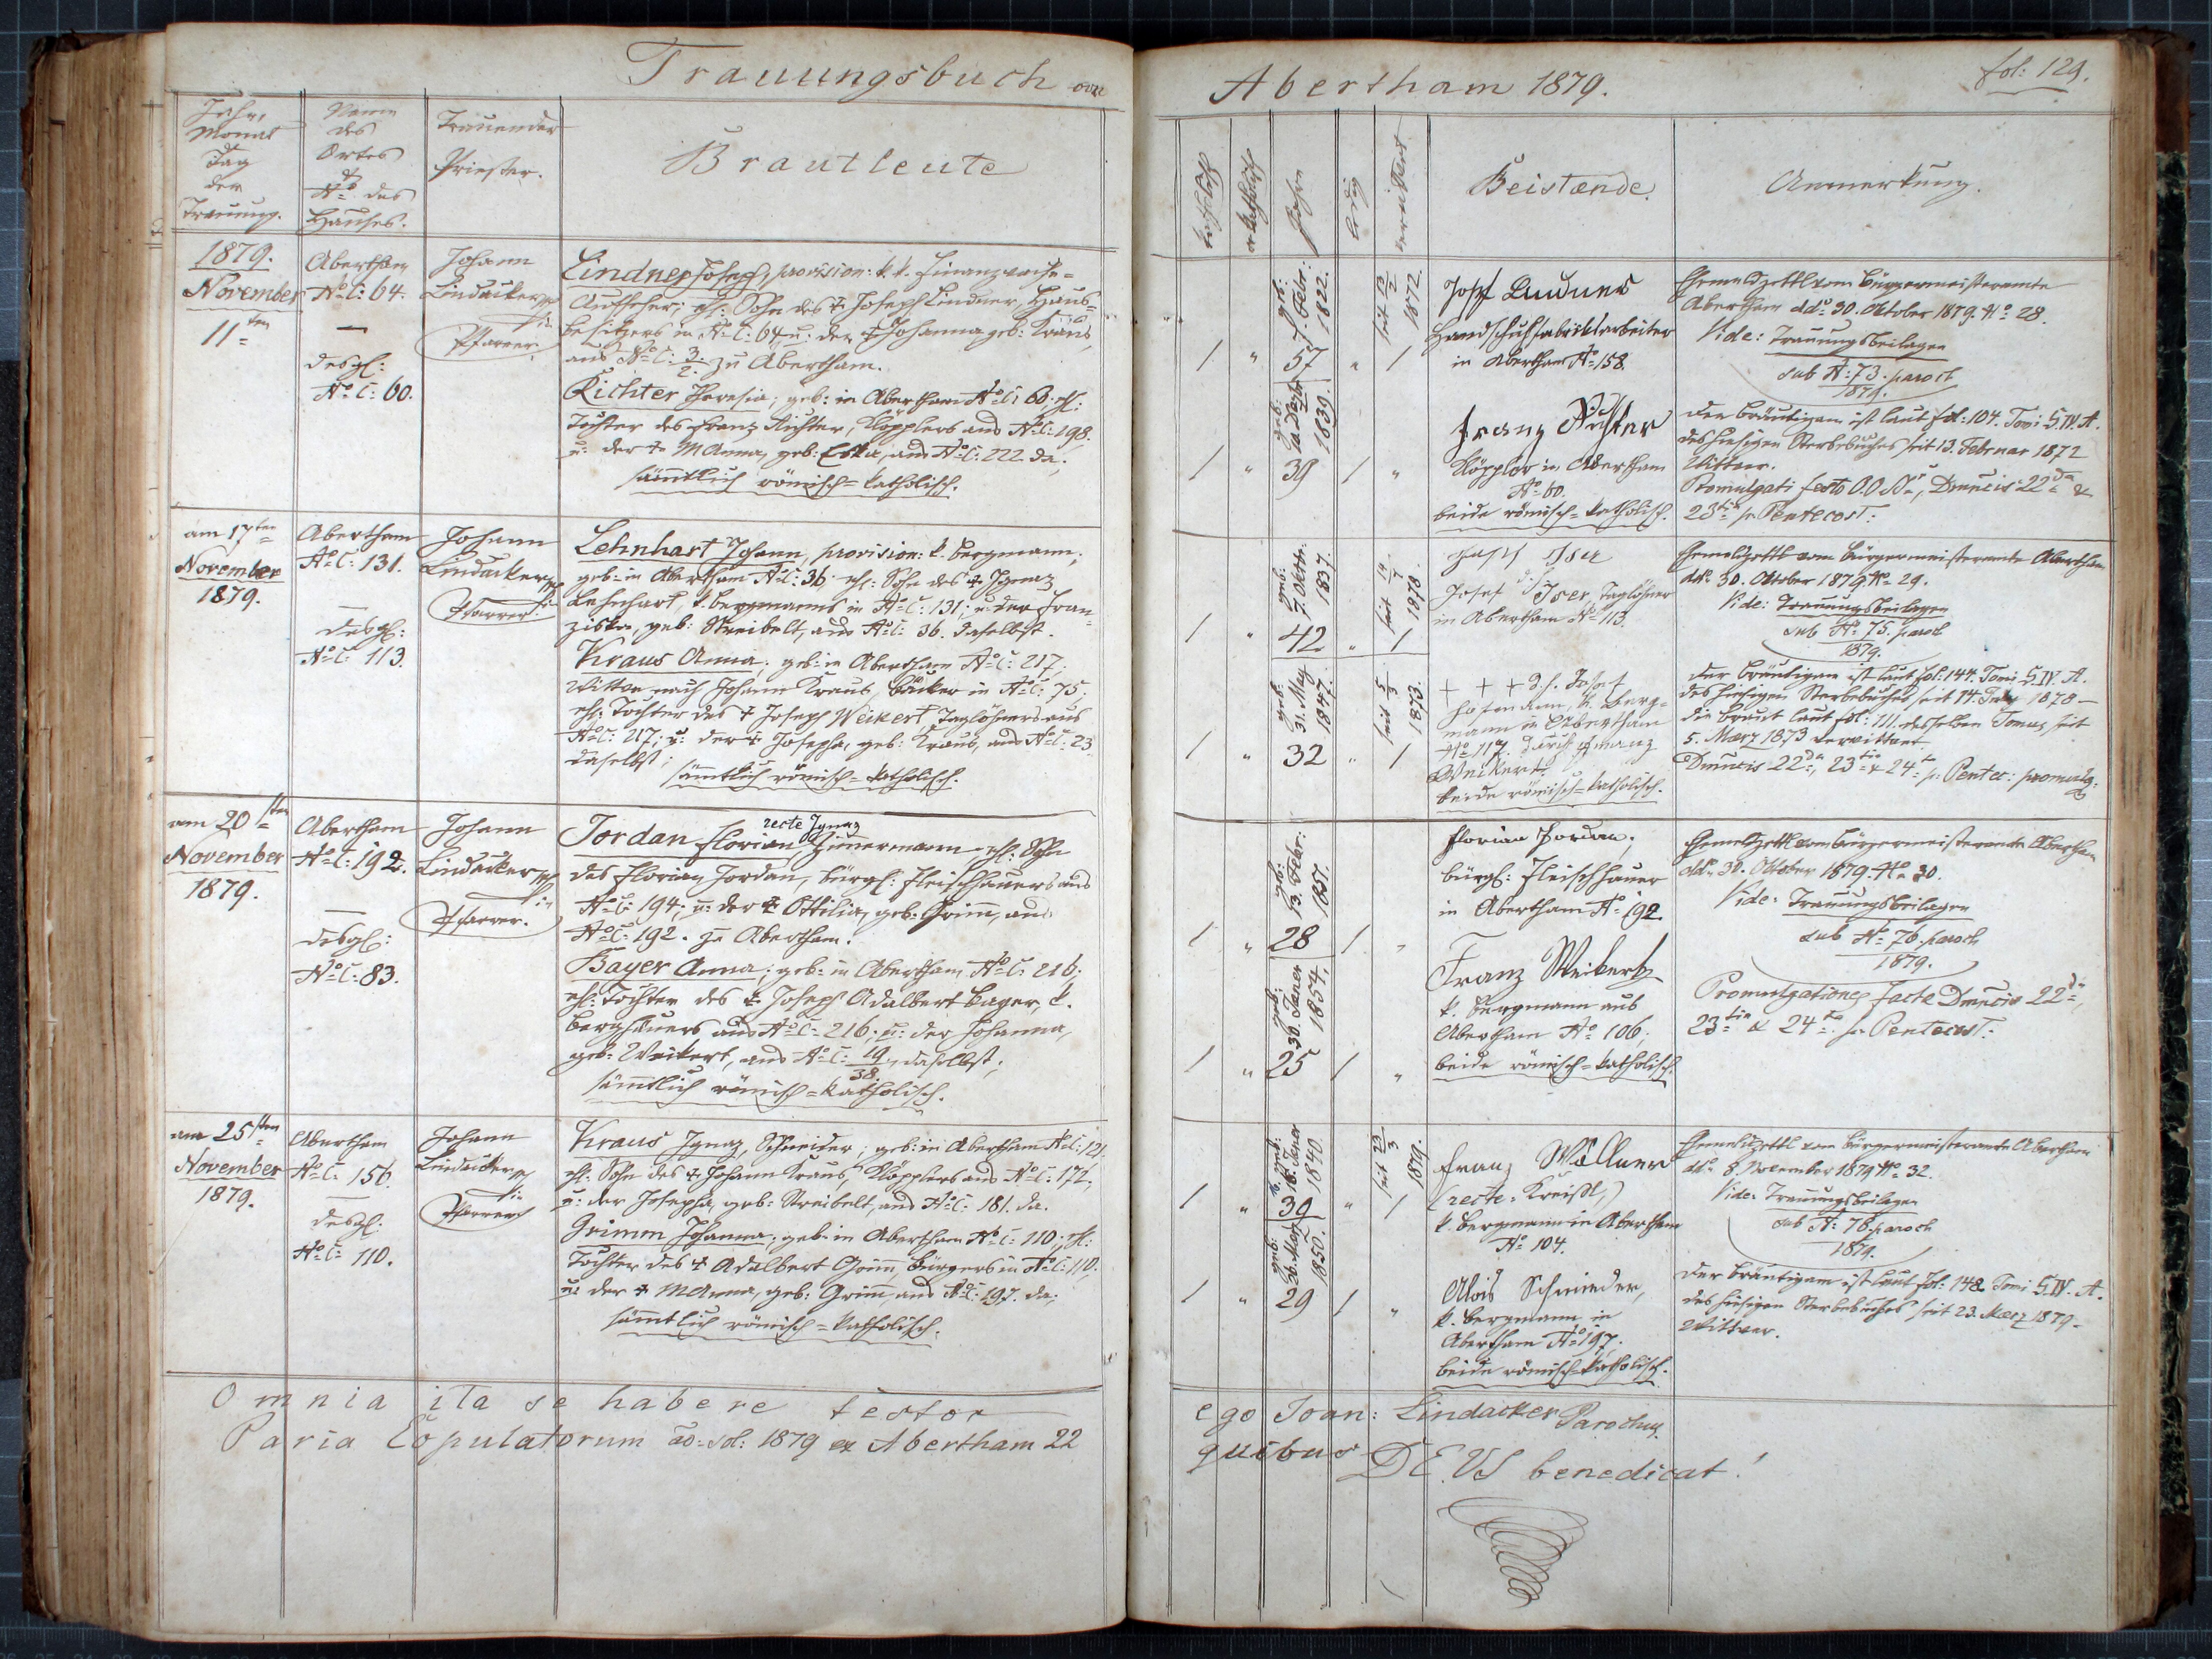 Trauungsbuch von
Jahr,
Monat
Tag
der
Trauung.
Name
des
Ortes
&
No des
Hauses.
Trauender
Priester.
Brautleute
1879.
November
11ten
Aberthan
No C: 64.
—
desgl:
No C: 60.
Johann
Lindacker
Pfarrer.
Lindner Joseph, provision: k. k. Finanzwache-
Aufseher; ehl: Sohn des † Joseph Lindner, Haus-
besitzers in No C: 64, u: der † Johanna geb: Kraus,
aus No C: 3/2. zu Abertham.
Richter Theresia; geb: in Abertham No C: 60. ehl:
Tochter des Franz Richter, Klöpplers aus No C: 198.
u: der † M Anna, geb: aus No C: 222 da;
sämtlich römisch=katholisch.
am 17ten
November
1879.
Abertham
No C: 131.
—
desgl:
No C: 113.
Johann
Lindacker
Pfarrer.
Lehnhart Johann, provision: k. Bergmann,
geb: in Abertham No C: 36. ehl: Sohn des † Ignaz
Lehnhart, k. Bergmanns in No C: 131; u: der Fran-
ziska, geb: Streibelt, aus No C: 36. daselbst.
Kraus Anna; geb: in Abertham No C: 217,
Wittwe nach Johann Kraus, Bäcker in No C: 75;
ehl: Tochter des † Joseph Weikert Taglöhners aus
No C: 217; u: der † Josepha, geb: Kraus, aus No C: 23
daselbst;
sämtlich römisch=katholisch.
am 20sten
November
1879.
Abertham
No C: 192.
—
desgl:
No C: 83.
Johann
Lindacker
Pfarrer.
recte Ignaz
Jordan Florian, Zimmermann ehl: Sohn
des Florian Jordan, bürgl: Fleischhauers aus
No C: 194; u: der † Ottilia, geb: Grimm, aus
No C: 192. zu Abertham.
Bayer Anna; geb: in Abertham No C: 216;
ehl: Tochter des † Joseph Adalbert Bayer, k.
Berghäuers aus No C: 216; u: der Johanna,
geb: Weikert, aus No C: 19/38. daselbst;
sämtlich römisch=katholisch.
am 25sten
November
1879.
Abertham
No C: 156.
—
desgl.
No C: 110.
Johann
Lindacker
Pfarrer
Kraus Ignaz, Schneider; geb: in Abertham No C: 121.
ehl: Sohn des † Johann Kraus, Klöpplers aus No C: 172,
u: der Josepha, geb: Streibelt, aus No C: 181. da.
Grimm Johanna; geb: in Abertham No C: 110; ehl:
Tochter des † Adalbert Grim, Bürgers in No C: 110;
u: der † M Anna, geb: Grim, aus No C: 197. da;
sämmtlich römisch=katholisch.
Omnia ita se habere testor
Paria Copulatorum ao: sol: 1879 ex Abertham 22
Abertham 1879.
fol: 129.
katholisch
Jahre
ledig
verwittwet
Beistænde.
Anmerkung.
geb:
7. Febr:
1822.
1 " 57 " 1
seit 13/2 1872.
Josef Lindner
Handschuhfabriksarbeiter
in Abertham No 158.
Ehemeldzettl vom Bürgermeisteramte
Abertham ddo 30. Oktober 1879. No 28.
Vide: Trauungsbeilagen
sub No: 73. paroch
1879.
geb:
1839.
1 " 39 1 "
Franz Richter
Klöppler in Abertham
No 60.
beide römisch=katholisch.
Der Bräutigam ist laut fol: 104. Tomi S. IV. A.
des hiesigen Sterbebuches seit 13. Februar 1872
Wittwer.
Promulgati festo O. O. Str, Dmncis 22da &
23tia p. Pentecost:
geb:
7. Oktbr:
1837.
1 " 42 " 1
seit 14/7 1878.
Josef Iser
Josef Iser, Taglöhner
in Abertham No 113.
Ehemeldzettl vom Bürgermeisteramte Abertham
ddo 30. Oktober 1879 No 29.
Vide: Trauungsbeilagen
sub No 75. paroch
1879.
geb:
31. May
1847.
1 " 32 " 1
seit 5/3 1873.
+ + + d. h. Josef
k. Berg-
mann in Abertham
No 117. durch Ignaz
Weikert.
beide römisch=katholisch.
Der Bräutigam ist laut fol: 144. Tomi S. IV. A.
des hiesigen Sterbebuches seit 14. July 1878 —
die Braut laut fol: 111. desselben Tomus, seit
5. März 1873 verwittwet.
Dmncis 22da, 23tia & 24ta p. Pentec: promulg:
geb:
13. Febr:
1851.
1 " 28 1 "
Florian Jordan.
bürgl: Fleischhauer
in Abertham No 192.
Ehemeldzettl vom Bürgermeisteramte Abertham
ddo 30. Oktober 1879. No 30.
Vide: Trauungsbeilagen
sub No 76. paroch
1879.
geb:
30. Janer
1854.
1 " 25 1 "
Franz Weikert
k. Bergmann aus
Abertham No 106;
beide römisch=katholisch.
Promulgationes factæ Dmncis 22da,
23tia & 24ta p. Pentecost:
geb:
18. Janer
1840.
1 " 39 " 1
seit 23/3 1879.
Franz Wöllner
(recte: Kreißl,)
k. Bergmann in Abertham
No 104.
Ehemeldzettl vom Bürgermeisteramte Abertham
ddo 8. November 1879 No 32.
Vide: Trauungsbeilagen
sub No: 78. paroch
1879.
geb:
1850.
1 " 29 1 "
Alois Schmieder,
k. Bergmann in
Abertham No 197.
beide römisch=katholisch.
Der Bräutigam ist laut fol: 148. Tomi S. IV. A.
des hiesigen Sterbebuches seit 23. März 1879 —
Wittwer.
ego Joan: Lindacker Parochus.
quibus DEUS benedicat!